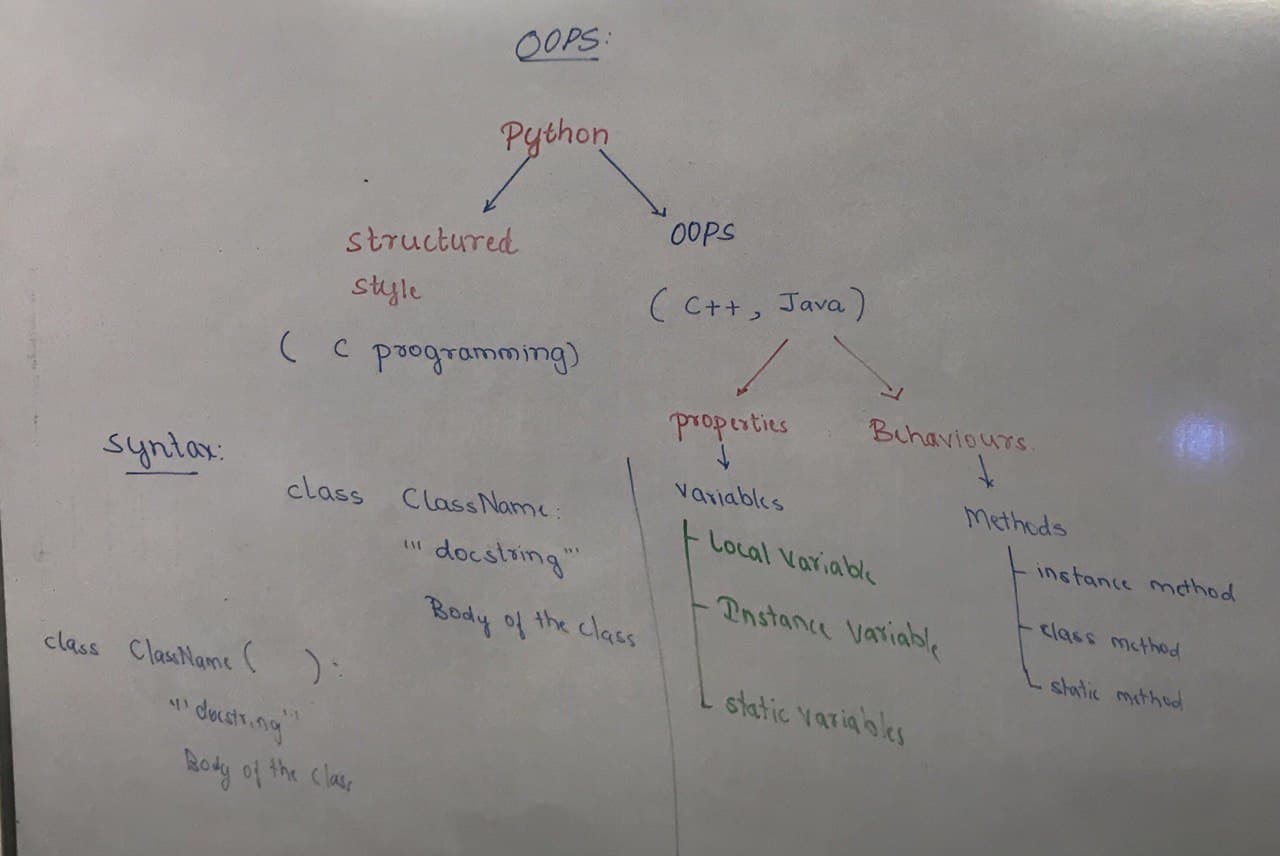 OOPS:
Python
structured
style
( C programming)
OOPS
( C++, Java)
properties
Variables
Local Variable
Instance Variable
static variables
Behaviours.
Methods
instance method
class method
static method
Syntax:
class ClassName:
''' docstring '''
Body of the class
class ClassName ( ):
''' docstring '''
Body of the class